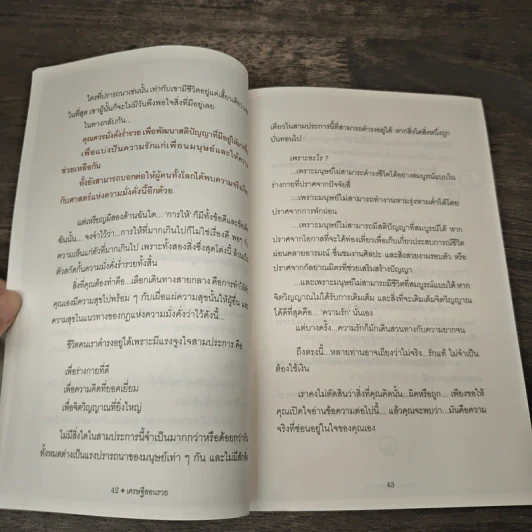 ใครที่ปรารถนาเช่นนั้น เท่ากับเขามีชีวิตอยู่แค่เสี้ยวเดียว
ในที่สุด เขาผู้นั้นก็จะไม่มีวันพึงพอใจสิ่งที่มีอยู่เลย
ในทางกลับกัน...
คุณควรมั่งคั่งร่ำรวย เพื่อพัฒนาสติปัญญาที่มีอยู่ให้มาก
เพื่อแบ่งปันความรักแก่เพื่อนมนุษย์และให้ความ
ช่วยเหลือกัน
ทั้งยังสามารถบอกต่อให้ผู้คนทั้งโลกได้พบความจริง
กับศาสตร์แห่งความมั่งคั่งนี้อีกด้วย
แต่เหรียญมีสองด้านฉันใด... 'การให้' ก็มีทั้งข้อดีและ
ฉันนั้น... จงจำไว้ว่า...การให้ที่มากเกินไปก็ไม่ใช่เรื่องดี
ความเห็นแก่ตัวที่มากเกินไป เพราะทั้งสองสิ่งซึ่งสุดโต่งนี้ ล้วน
ตัวสกัดกั้นความมั่งคั่งร่ำรวยทั้งสิ้น
สิ่งที่คุณต้องทำคือ...เลือกเดินทางสายกลาง คือการทำให้
คุณเองมีความสุขไปพร้อม ๆ กับเผื่อแผ่ความสุขนั้นให้ผู้อื่น
ความสุขในแนวทางของกฎแห่งความมั่งคั่งว่าไว้ดังนี้...
ชีวิตคนเราดำรงอยู่ได้เพราะมีแรงจูงใจสามประการ คือ
เพื่อร่างกายที่ดี
เพื่อความคิดที่ยอดเยี่ยม
เพื่อจิตวิญญาณที่ยิ่งใหญ่
ไม่มีสิ่งใดในสามประการนี้จำเป็นมากกว่าหรือด้อยกว่ากัน
ทั้งหมดต่างเป็นแรงปรารถนาของมนุษย์เท่า ๆ กัน และไม่มี
42 ◆ เศรษฐีสอนรวย
เดียวในสามประการนี้ที่สามารถดำรงอยู่ได้ หากสิ่งใดสิ่งหนึ่งถูก
บั่นทอนไป
เพราะอะไร ?
...เพราะมนุษย์ไม่สามารถดำรงชีวิตได้อย่างสมบูรณ์แบบใน
ร่างกายที่ปราศจากปัจจัยสี่
...เพราะมนุษย์ไม่สามารถทำงานหามรุ่งหามค่ำได้โดย
ปราศจากการพักผ่อน
...เพราะมนุษย์ไม่สามารถมีสติปัญญาที่สมบูรณ์ได้ หาก
ปราศจากโอกาสที่จะได้ท่องเที่ยวเพื่อเก็บเกี่ยวประสบการณ์ชีวิต
ผ่อนคลายอารมณ์ ชื่นชมงานศิลปะ และสิ่งสวยงามรอบตัว หรือ
ปราศจากกัลยาณมิตรที่ช่วยเสริมสร้างปัญญา
...และเพราะมนุษย์ไม่สามารถมีชีวิตที่สมบูรณ์แบบได้ หาก
จิตวิญญาณไม่ได้รับการเติมเต็ม และสิ่งที่จะเติมเต็มจิตวิญญาณ
ได้ดีที่สุดคือ... 'ความรัก' นั่นเอง
แต่บางครั้ง... ความรักก็มักเดินสวนทางกับความยากจน
ถึงตรงนี้...หลายท่านอาจเถียงว่าไม่จริง...รักแท้ ไม่จำเป็น
ต้องใช้เงิน
เราคงไม่ตัดสินว่าสิ่งที่คุณคิดนั้น...ผิดหรือถูก... เพียงขอให้
คุณเปิดใจอ่านข้อความต่อไปนี้... แล้วคุณจะพบว่า...มันคือความ
จริงที่ซ่อนอยู่ในใจของคุณเอง
43